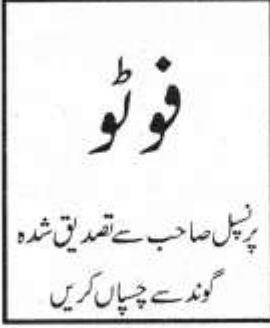 فوٹو
پرنسپل صاحب سے تصدیق شدہ
گوند سے چسپاں کریں